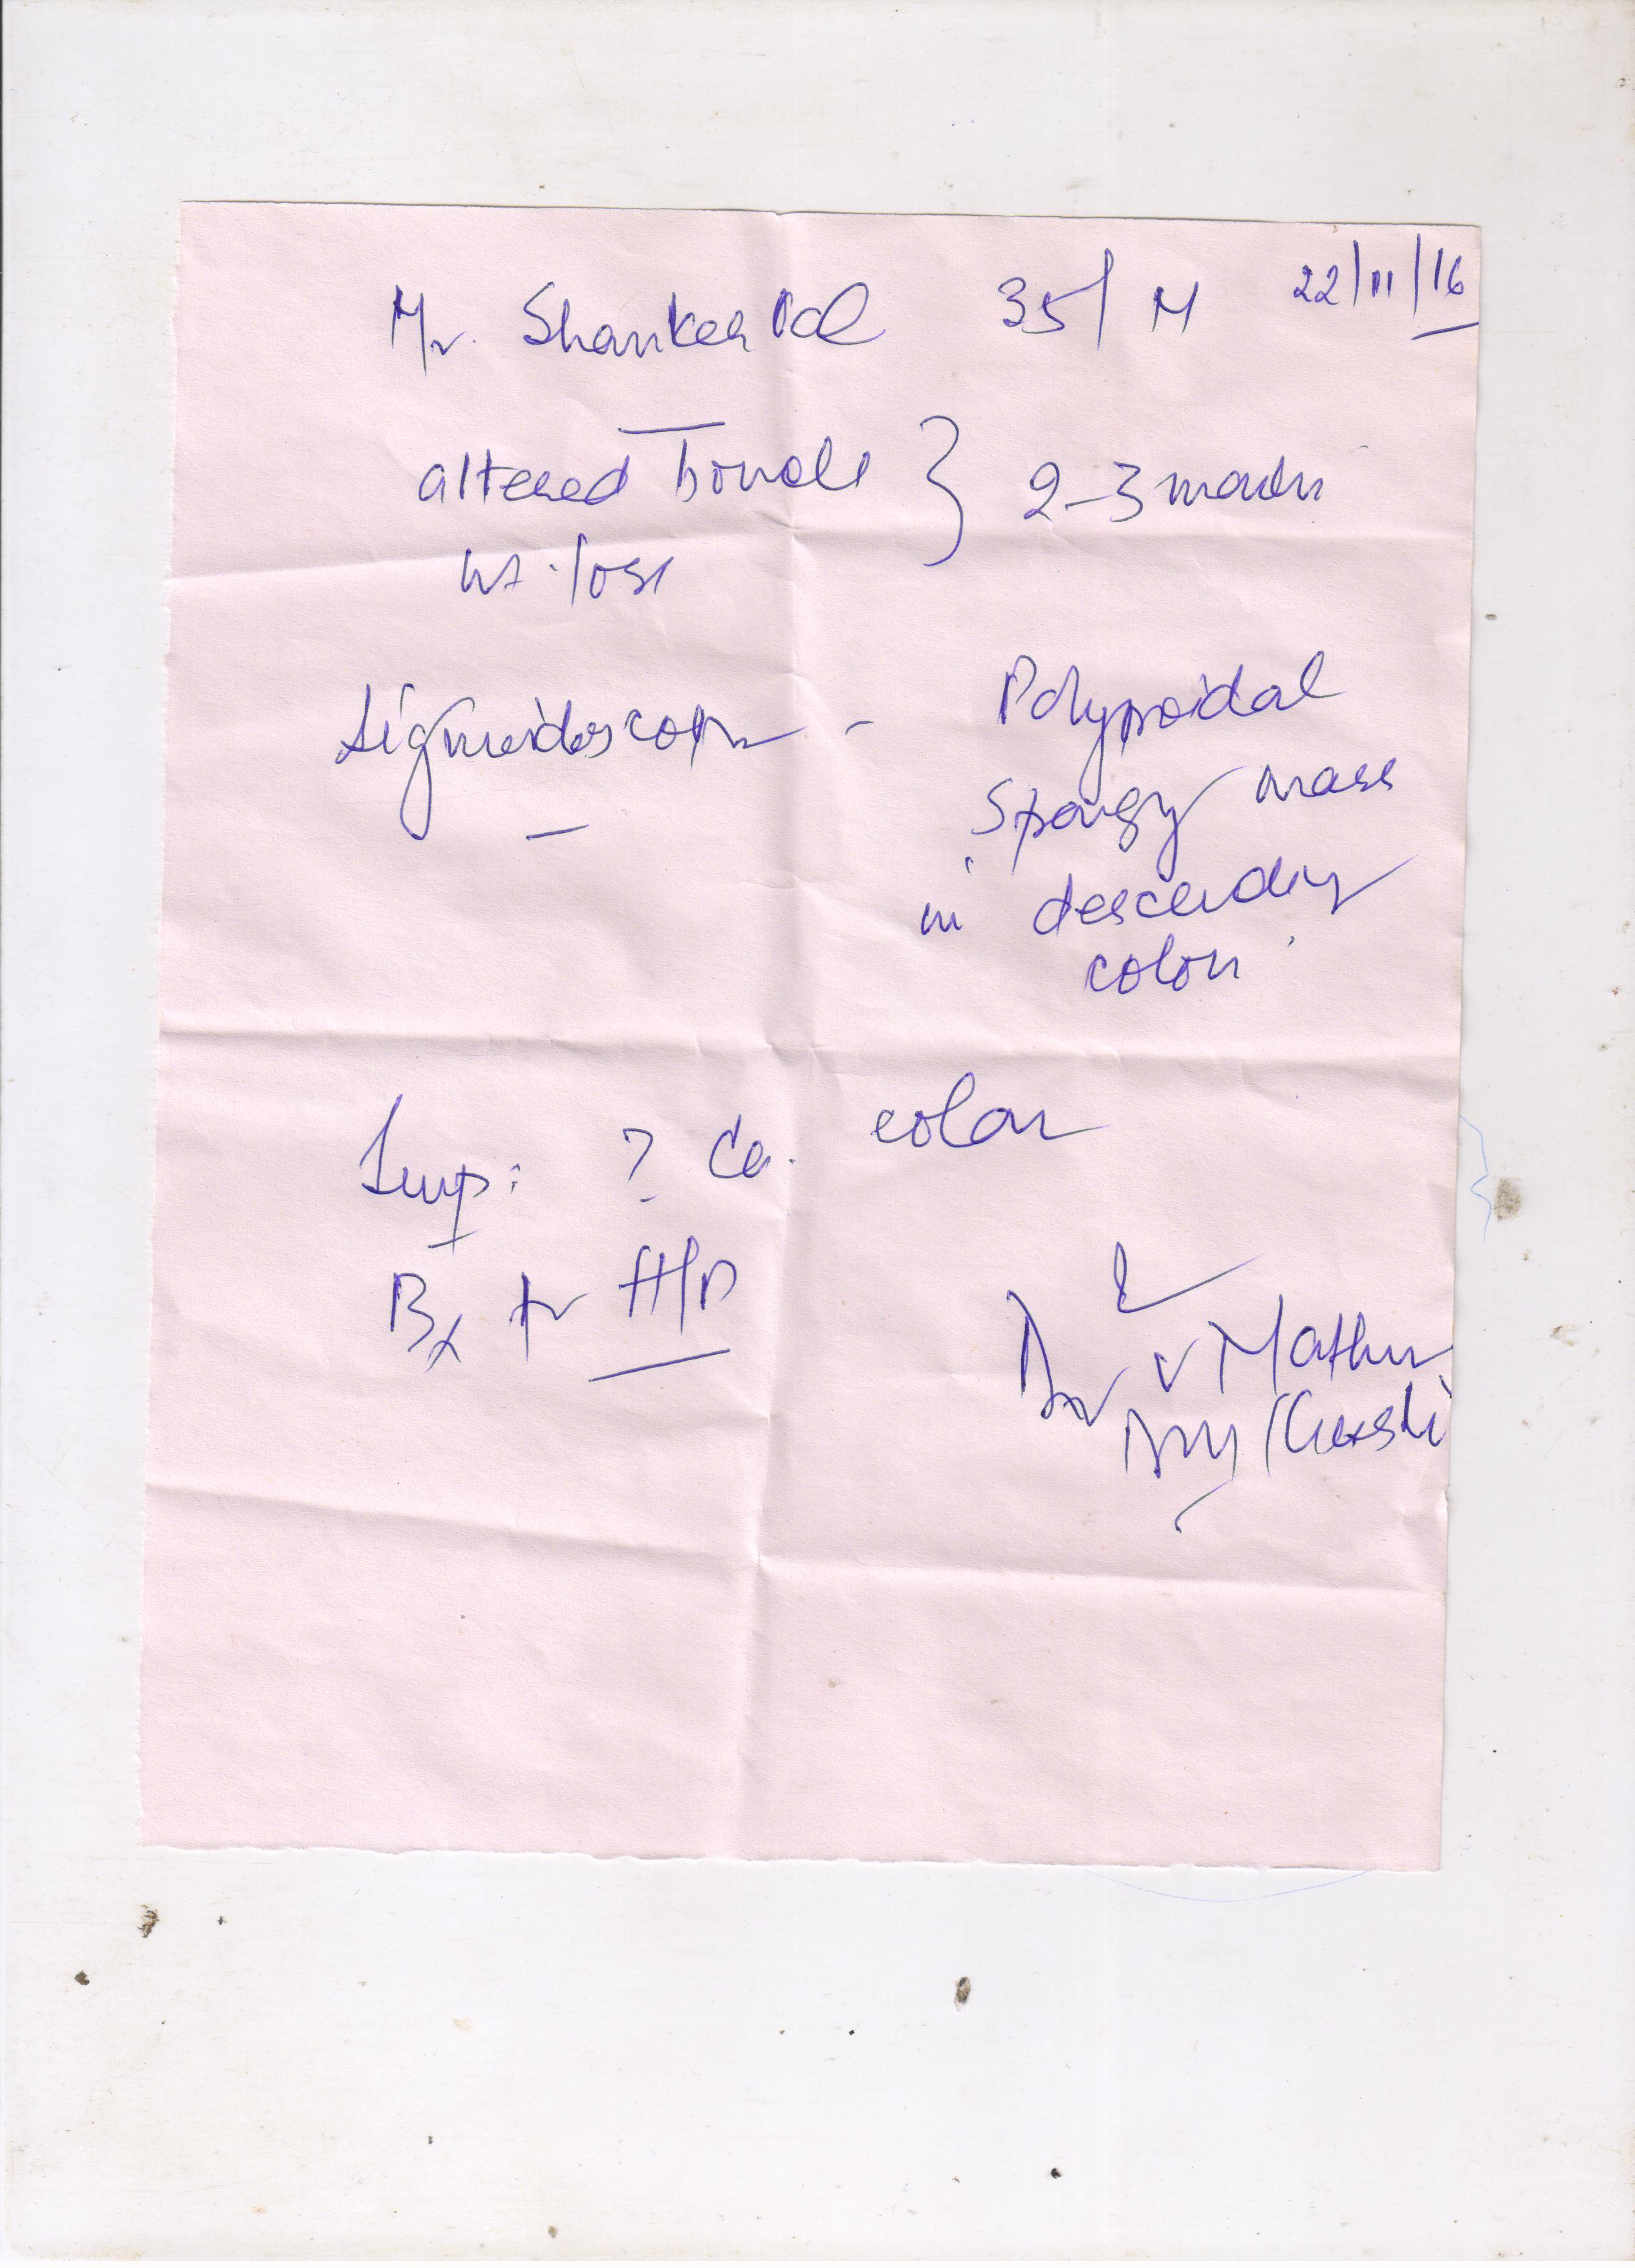 Mr. Shanker Pal 35/M 22/11/16
altered bowels } 2-3 months
wt. loss
Sigmoidoscopy - Polypoidal
spongy mass
in descending
colon
Imp: ? Ca. colon
Bx for H/P
Dr V Mathur